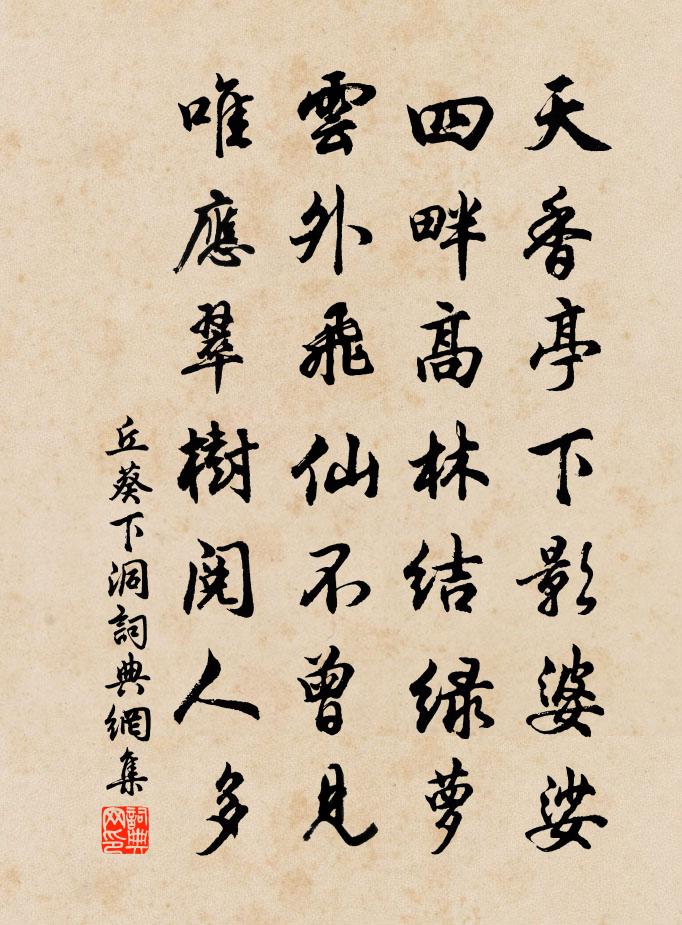 天香亭下影婆娑
四畔髙林結緑萝
雲外飛仙不曾見
唯應翠樹閱人多
丘葵下洞詞典網集
詞典网印